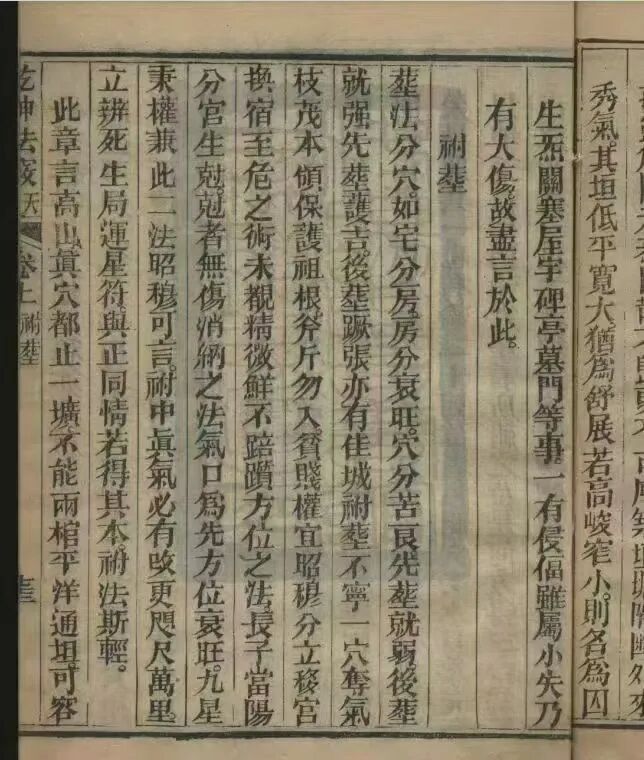 秀氣。其坦低平寬大猶為舒展若高峻窄小。則名為囚
生炁關塞屋宇碑亭墓門等事。一有侵偪雖屬小失乃
有大傷。故盡言於此。
祔塟
塟法分穴。如宅分房。房分衰旺。穴分苦良。先塟就弱。後塟
就强先塟護吉。後塟蹶張亦有佳城祔塟不寧一穴奪氣
枝茂本傾保護祖根斧斤勿入貧賤權宜昭穆分立移宮
換宿至危之術未覩精微鮮不踣躓方位之法。長子當陽
分官生尅。尅者無傷消納之法氣口為先方位衰旺。九星
秉權兼此二法昭穆可言。祔中眞氣必有攺更咫尺萬里
立辨死生局運星符與正同情若得其本。祔法斯輕。
此章言高山眞穴都止一壙不能兩棺平洋通坦。可容
乾坤法竅 天 卷上 祔塟